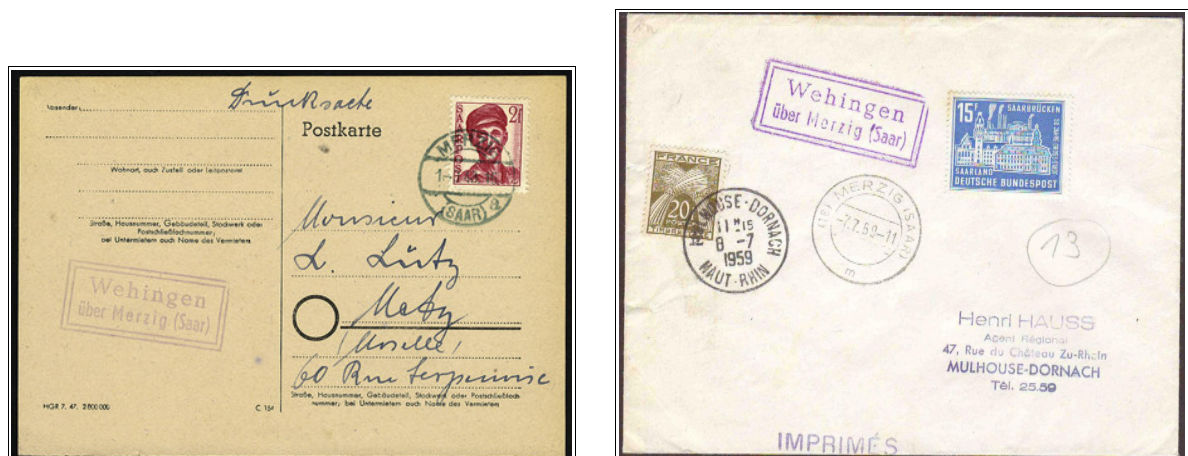 Absender:
Drucksache
Postkarte
2f
SAARPOST
MERZIG
(SAAR)
a
Wohnort, auch Zustell- oder Leitpostamt
Straße, Hausnummer, Gebäudeteil, Stockwerk oder
Postschließfachnummer;
bei Untermietern auch Name des Vermieters
Wehingen
über Merzig (Saar)
Monsieur
L. Lutz
Metz
(Moselle)
60 Rue Serpenoise
Straße, Hausnummer, Gebäudeteil, Stockwerk oder Postschließfach-
nummer; bei Untermietern auch Name des Vermieters
HGR 7. 47. 2800000
C 154
Wehingen
über Merzig (Saar)
15F
SAARBRÜCKEN
SAARLAND
DEUTSCHE BUNDESPOST
FRANCE
20
MULHOUSE-DORNACH
11H15
8 -7
1959
HAUT-RHIN
MERZIG (SAAR)
-7.7.59-11
m
13
Henri HAUSS
Agent Régional
47, Rue du Château Zu-Rhein
MULHOUSE-DORNACH
Tél. 25.59
IMPRIMÉS